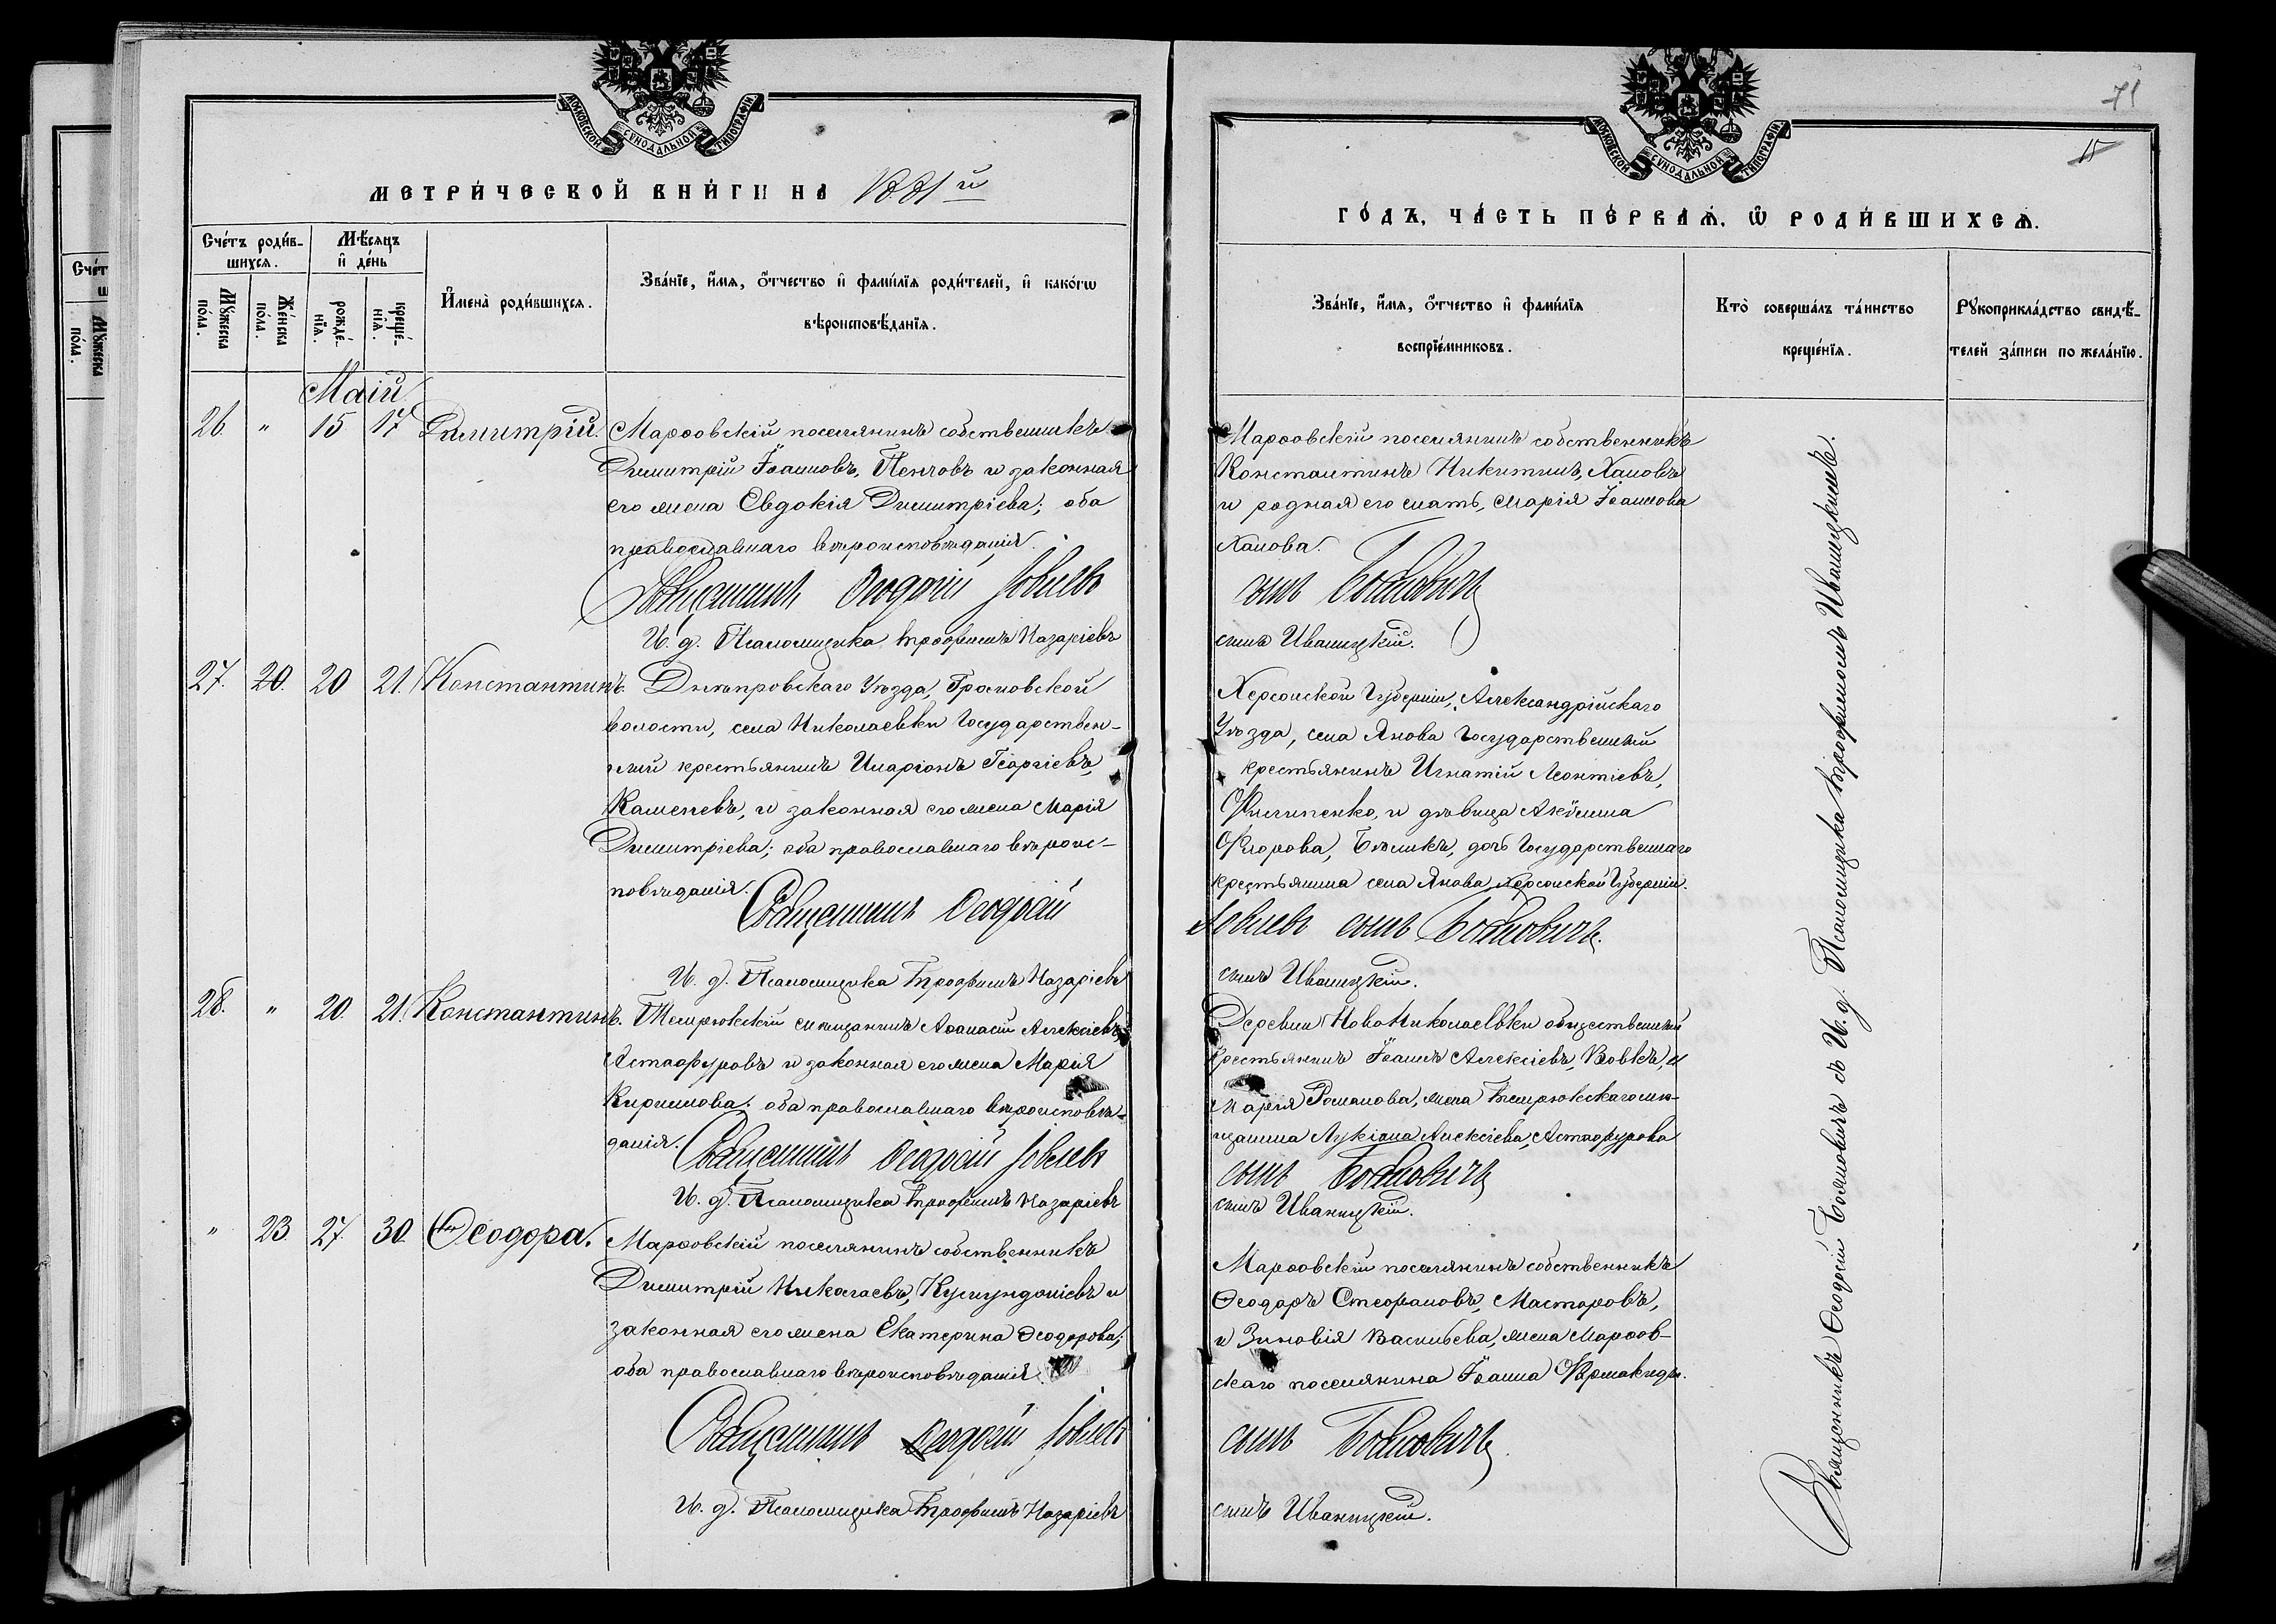 МОСКОВСКОЙ СѴНОДАЛЬНОЙ ТИПОГРАФІИ
МЕТРИ́ЧЕСКОЙ КНИ́ГИ НА 1881й
Сче́тъ роди́в-
шихся.
Мѣ́сяцъ
и҆ де́нь
Мꙋ́жеска по́ла.
Же́нска по́ла.
рожде́-
нїя.
креще́-
нїя.
И҆мена̀ роди́вшихся.
Зва́нїе, и҆́мя, ѻ҆́тчество и҆ фами́лїя роди́телей, и҆ како́гѡ
вѣроисповѣ́данїя.
Маій
26. " 15 17 Димитрій.
Марѳовскій поселянинъ собственникъ
Димитрій Іоанновъ, Пенчовъ и законная
его жена Евдокія Димитріева; оба
православнаго вѣроисповѣданія.
Священникъ Ѳеодосій Іовлевъ
И. д. Псаломщика Трофимъ Назаріевъ
27. 20. 20 21. Константинъ.
Днѣпровскаго Уѣзда, Громовской
волости, села Николаевки Государствен-
ный крестьянинъ Иларіонъ Георгіевъ,
Каменевъ, и законная его жена Марія
Димитріева; оба православнаго вѣроис-
повѣданія.
Священникъ Ѳеодосій
И. д. Псаломщика Трофимъ Назаріевъ
28. " 20. 21. Константинъ.
Темрюкскій мѣщанинъ Аѳанасій Алексіевъ,
Астафуровъ и законная его жена Марія
Кириллова; оба православнаго вѣроисповѣ-
данія.
Священникъ Ѳеодосій Іовлевъ
И. д. Псаломщика Трофимъ Назаріевъ
" 23 27. 30. Ѳеодора.
Марѳовскій поселянинъ собственникъ
Димитрій Николаевъ, и
законная его жена Екатерина Ѳеодорова;
оба православнаго вѣроисповѣданія.
Священникъ Ѳеодосій Іовлевъ
И. д. Псаломщика Трофимъ Назаріевъ
71
15
МОСКОВСКОЙ СѴНОДАЛЬНОЙ ТИПОГРАФІИ
ГО́ДЪ, ЧА́СТЬ ПЕ́РВАѦ, Ѡ҆ РОДИ́ВШИХСѦ.
Зва́нїе, и҆́мя, ѻ҆́тчество и҆ фами́лїя
воспрїе́мниковъ.
Кто̀ соверша́лъ та́инство
креще́нїя.
Рꙋкоприкла́дство свидѣ́-
телей за́писи по жела́нїю.
Марѳовскій поселянинъ собственникъ
Константинъ Никитинъ, Хановъ
и родная его мать, Марія Іоаннова
Ханова.
сынъ Бояновичъ
сынъ Иваницкій.
Херсонской Губерніи, Александрійскаго
Уѣзда, села Янова Государственный
крестьянинъ Игнатій Леонтіевъ,
Филипенко, и дѣвица Акилина
Флорова, дочь Государственнаго
крестьянина села Янова Херсонской Губерніи.
Іовлевъ сынъ Бояновичъ.
сынъ Иваницкій.
Деревни НовоНиколаевки общественный
крестьянинъ Іоаннъ Алексіевъ, Вовкъ, и
Марія Романова, жена Темрюкскаго мѣ-
щанина Лукіана Алексіева, Астафурова
сынъ Бояновичъ
сынъ Иваницкій.
Марѳовскій поселянинъ собственникъ
Ѳеодоръ Стефановъ, Масторовъ,
и Зиновія Васильева, жена Марѳов-
скаго поселянина Іоанна
сынъ Бояновичъ.
сынъ Иваницкій.
Священникъ Ѳеодосій Бояновичъ съ И. д. Псаломщика Трофимомъ Иваницкимъ.
Сче́т
ш
Мꙋ́жеска
по́ла.